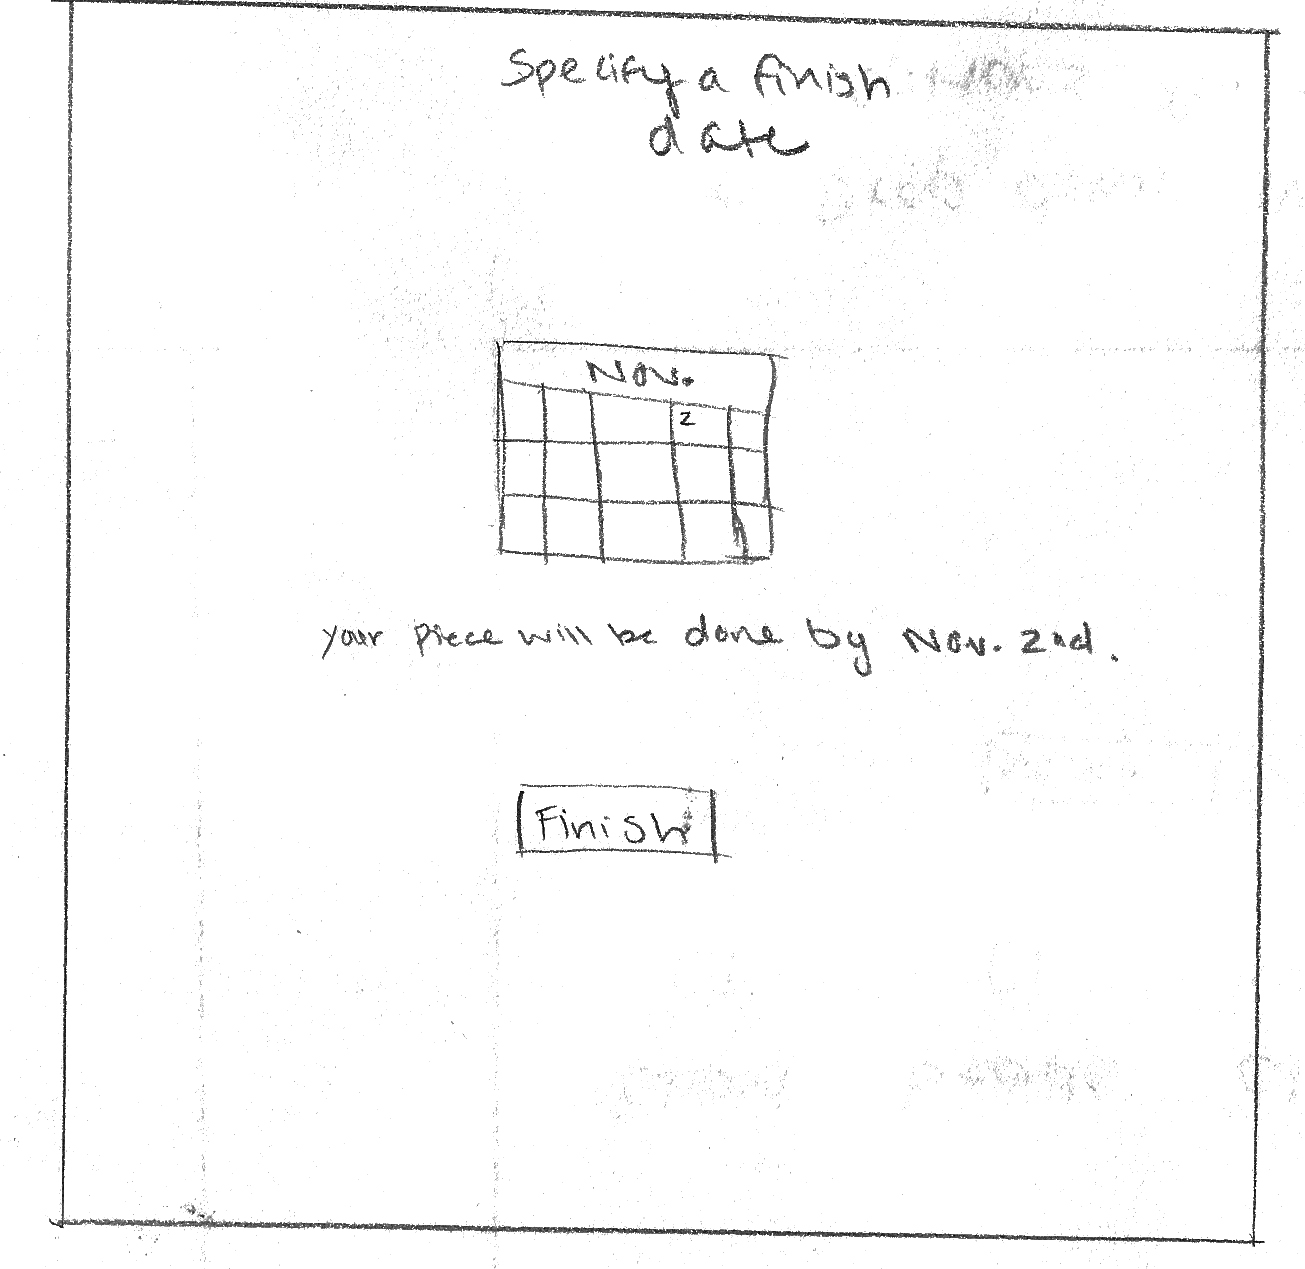 Specify a finish
date
Nov.
2
your piece will be done by Nov. 2nd.
Finish